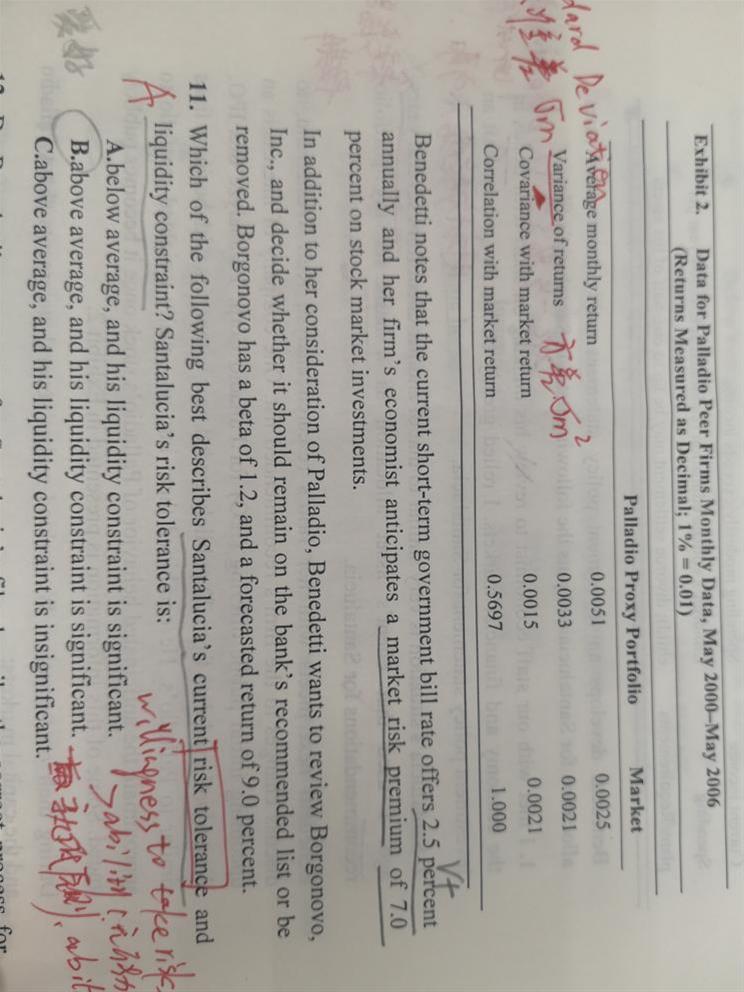 Exhibit 2. Data for Palladio Peer Firms Monthly Data, May 2000–May 2006
(Returns Measured as Decimal; 1% = 0.01)
Palladio Proxy Portfolio Market
Average monthly return 0.0051 0.0025
Variance of returns 0.0033 0.0021
Covariance with market return 0.0015 0.0021
Correlation with market return 0.5697 1.000
dard Deviation
σm
方差 σm²
Benedetti notes that the current short-term government bill rate offers 2.5 percent
annually and her firm's economist anticipates a market risk premium of 7.0
percent on stock market investments.
In addition to her consideration of Palladio, Benedetti wants to review Borgonovo,
Inc., and decide whether it should remain on the bank's recommended list or be
removed. Borgonovo has a beta of 1.2, and a forecasted return of 9.0 percent.
11. Which of the following best describes Santalucia's current risk tolerance and
liquidity constraint? Santalucia's risk tolerance is:
A
A.below average, and his liquidity constraint is significant.
B.above average, and his liquidity constraint is significant.
C.above average, and his liquidity constraint is insignificant.
willingness to take risk
>ability